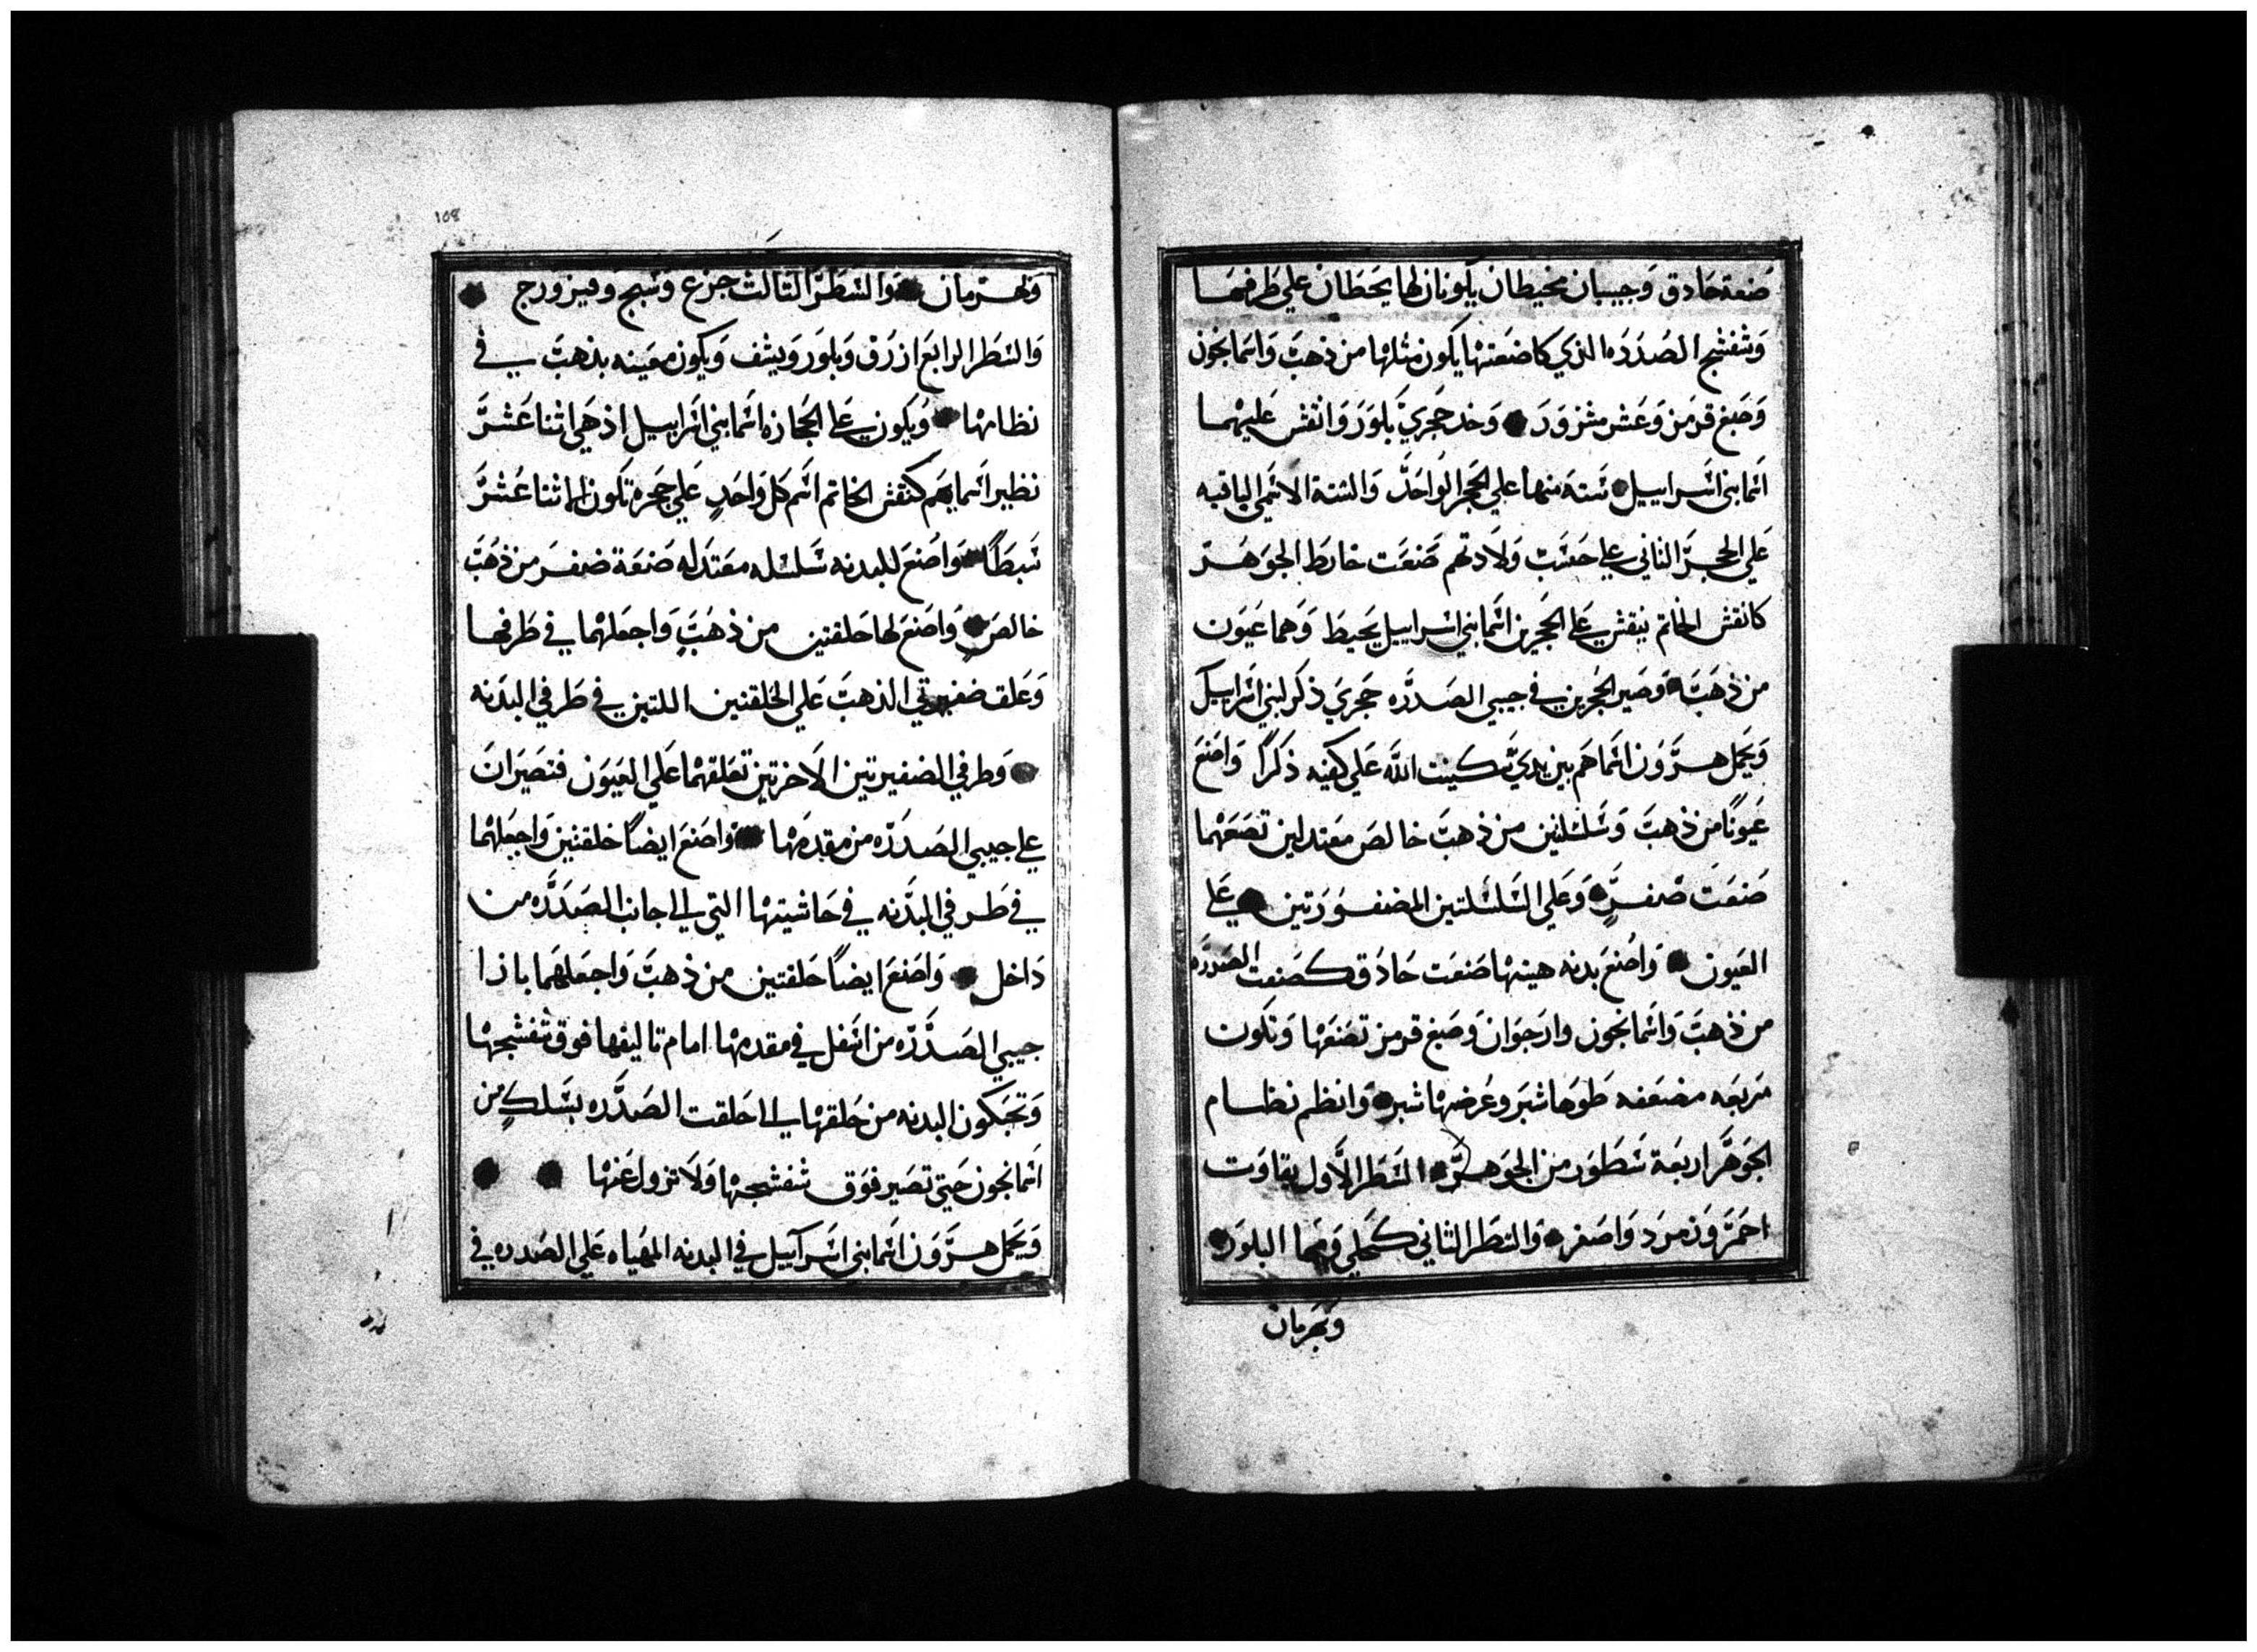 صنعة حادق وجيبان مخيطان يكونان لها يحطان علي طرفيهما
وشفشج الصدره الذي كاضعتها يكون مثلها من ذهب واسمانجون
وصبغ قرمز وعشر مشزور وخد حجري بلور وانقش عليهما
اسما بني اسراييل ستة منها علي الحجر الواحد والستة الاسمي الباقيه
علي الحجر الثاني علي حسب ولادتهم صنعت خارط الجوهر
كانقش الخاتم ينقش علي الحجرين اسما بني اسراييل يحيط وهما عيون
من ذهب وصير الحجرين في جيبي الصدره حجري ذكر لبني اسراييل
ويحمل هرون اسماهم بين يدي سكينت الله علي كتفيه ذكرا واصنع
عيونا من ذهب وسلسلتين من ذهب خالص معتدلين تصعهما
صنعت ضفر وعلي السلسلتين المضفورتين علي
العيون واصنع بدنه هيتها صنعت حادق كصنعت الصدره
من ذهب واسمانجون وارجوان وصبغ قرمز تصنعها وتكون
مربعه مضعفه طوها شبر وعرضها شبر وانظم نظام
الجوهر اربعة سطور من الجوهر السطر الاول ياقوت
احمر وزمرد واصفر والسطر الثاني كحلي ومها البلور
وبهرمان
108
وبهرمان والسطر الثالث جزع وسبج وفيزورج
والسطر الرابع ازرق وبلور ويشف ويكون معينه بذهب في
نظامها ويكون علي الحجازه اسما بني اسراييل اذ هي اثنا عشر
نظير اسمايهم كنقش الخاتم اسم كل واحد علي حجره تكون للاثنا عشر
سبطا واصنع للبدنه سلسله معتدله صنعة ضفر من ذهب
خالص واصنع لها حلقتين من ذهب واجعلهما في طرفها
وعلق ضفيرتي الذهب علي الحلقتين اللتين في طرفي البدنه
وطرفي الضفيرتين الاخرتين تعلقهما علي العيون فتصيران
علي جيبي الصدره من مقدمها واصنع ايضا حلقتين واجعلهما
في طرفي البدنه في حاشيتها التي الي جانب الصدره من
داخل واصنع ايضا حلقتين من ذهب واجعلهما بازا
جيبي الصدره من اسفل في مقدمها امام تاليفها فوق شفشجها
وتحبكون البدنه من حلقها الي حلقت الصدره بسلك من
اسمانجون حتي تصير فوق شفشجها ولا تزول عنها
ويحمل هرون اسما بني اسراييل في البدنه المهياه علي الصدره في